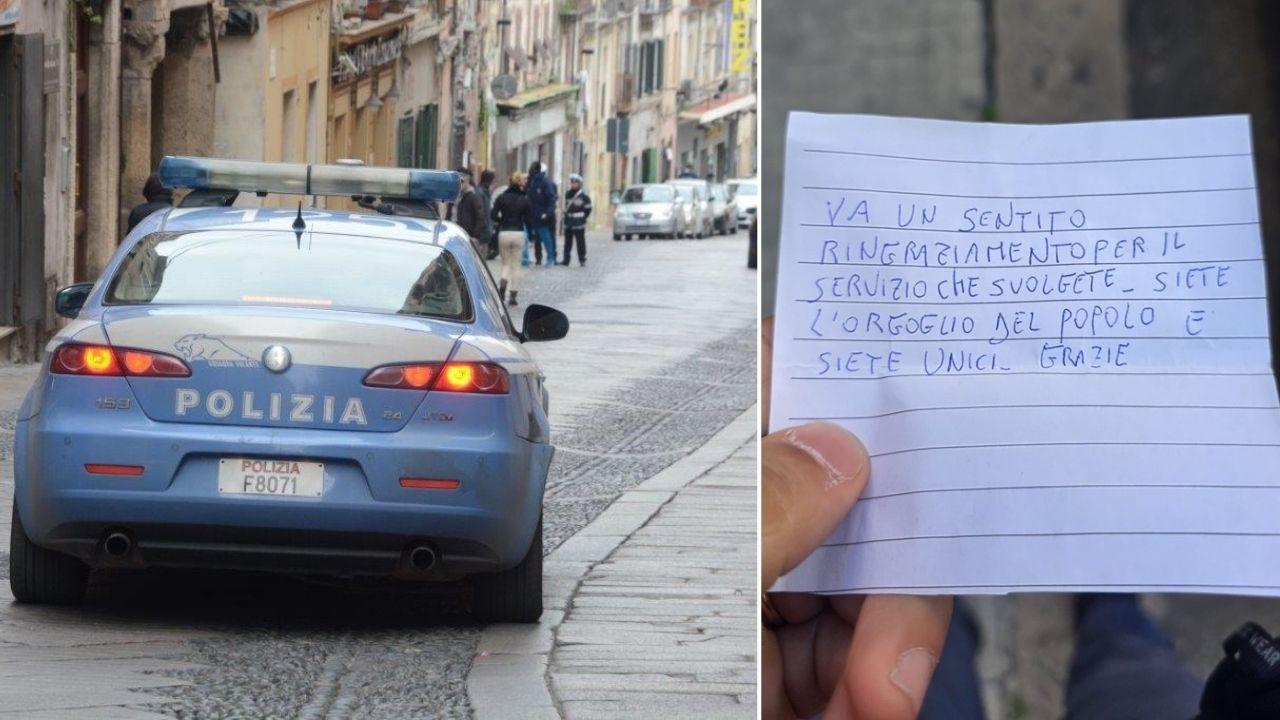 159
POLIZIA
2.4 JTDM
POLIZIA
F8071
VA UN SENTITO
RINGRAZIAMENTO PER IL
SERVIZIO CHE SVOLGETE_ SIETE
L'ORGOGLIO DEL POPOLO E
SIETE UNICI_ GRAZIE